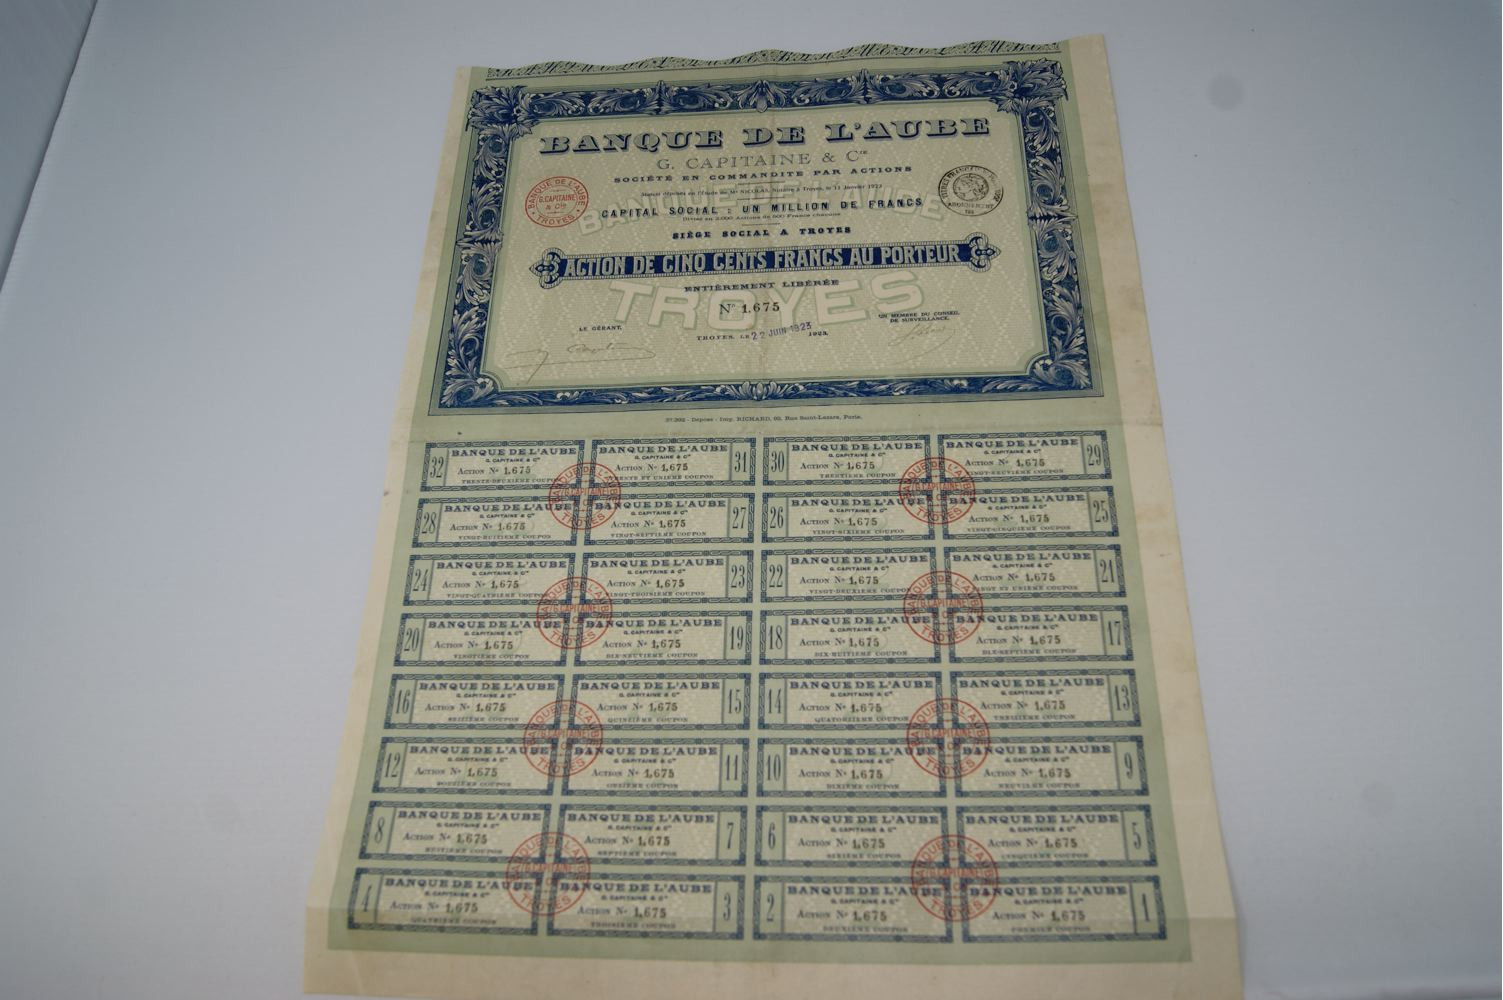 BANQUE DE L'AUBE
G. CAPITAINE & Cie
SOCIÉTÉ EN COMMANDITE PAR ACTIONS
Statuts déposés en l'Étude de Me NICOLAS, Notaire à Troyes, le 11 Janvier 1923
CAPITAL SOCIAL : UN MILLION DE FRANCS
Divisé en 2.000 Actions de 500 Francs chacune
SIÈGE SOCIAL A TROYES
BANQUE DE L'AUBE G. CAPITAINE & Cie TROYES
BANQUE DE L'AUBE
ACTION DE CINQ CENTS FRANCS AU PORTEUR
ENTIÈREMENT LIBÉRÉE
TROYES
No 1.675
LE GÉRANT,
TROYES, LE 22 JUIN 1923 1923.
UN MEMBRE DU CONSEIL
DE SURVEILLANCE,
27.302 - Déposé - Imp. RICHARD, 60, Rue Saint-Lazare, Paris.
32 BANQUE DE L'AUBE G. CAPITAINE & Cie ACTION No 1.675 TRENTE-DEUXIÈME COUPON
BANQUE DE L'AUBE G. CAPITAINE & Cie ACTION No 1.675 TRENTE ET UNIÈME COUPON 31
30 BANQUE DE L'AUBE G. CAPITAINE & Cie ACTION No 1.675 TRENTIÈME COUPON
BANQUE DE L'AUBE G. CAPITAINE & Cie ACTION No 1.675 VINGT-NEUVIÈME COUPON 29
28 BANQUE DE L'AUBE G. CAPITAINE & Cie ACTION No 1.675 VINGT-HUITIÈME COUPON
BANQUE DE L'AUBE G. CAPITAINE & Cie ACTION No 1.675 VINGT-SEPTIÈME COUPON 27
26 BANQUE DE L'AUBE G. CAPITAINE & Cie ACTION No 1.675 VINGT-SIXIÈME COUPON
BANQUE DE L'AUBE G. CAPITAINE & Cie ACTION No 1.675 VINGT-CINQUIÈME COUPON 25
24 BANQUE DE L'AUBE G. CAPITAINE & Cie ACTION No 1.675 VINGT-QUATRIÈME COUPON
BANQUE DE L'AUBE G. CAPITAINE & Cie ACTION No 1.675 VINGT-TROISIÈME COUPON 23
22 BANQUE DE L'AUBE G. CAPITAINE & Cie ACTION No 1.675 VINGT-DEUXIÈME COUPON
BANQUE DE L'AUBE G. CAPITAINE & Cie ACTION No 1.675 VINGT ET UNIÈME COUPON 21
20 BANQUE DE L'AUBE G. CAPITAINE & Cie ACTION No 1.675 VINGTIÈME COUPON
BANQUE DE L'AUBE G. CAPITAINE & Cie ACTION No 1.675 DIX-NEUVIÈME COUPON 19
18 BANQUE DE L'AUBE G. CAPITAINE & Cie ACTION No 1.675 DIX-HUITIÈME COUPON
BANQUE DE L'AUBE G. CAPITAINE & Cie ACTION No 1.675 DIX-SEPTIÈME COUPON 17
16 BANQUE DE L'AUBE G. CAPITAINE & Cie ACTION No 1.675 SEIZIÈME COUPON
BANQUE DE L'AUBE G. CAPITAINE & Cie ACTION No 1.675 QUINZIÈME COUPON 15
14 BANQUE DE L'AUBE G. CAPITAINE & Cie ACTION No 1.675 QUATORZIÈME COUPON
BANQUE DE L'AUBE G. CAPITAINE & Cie ACTION No 1.675 TREIZIÈME COUPON 13
12 BANQUE DE L'AUBE G. CAPITAINE & Cie ACTION No 1.675 DOUZIÈME COUPON
BANQUE DE L'AUBE G. CAPITAINE & Cie ACTION No 1.675 ONZIÈME COUPON 11
10 BANQUE DE L'AUBE G. CAPITAINE & Cie ACTION No 1.675 DIXIÈME COUPON
BANQUE DE L'AUBE G. CAPITAINE & Cie ACTION No 1.675 NEUVIÈME COUPON 9
8 BANQUE DE L'AUBE G. CAPITAINE & Cie ACTION No 1.675 HUITIÈME COUPON
BANQUE DE L'AUBE G. CAPITAINE & Cie ACTION No 1.675 SEPTIÈME COUPON 7
6 BANQUE DE L'AUBE G. CAPITAINE & Cie ACTION No 1.675 SIXIÈME COUPON
BANQUE DE L'AUBE G. CAPITAINE & Cie ACTION No 1.675 CINQUIÈME COUPON 5
4 BANQUE DE L'AUBE G. CAPITAINE & Cie ACTION No 1.675 QUATRIÈME COUPON
BANQUE DE L'AUBE G. CAPITAINE & Cie ACTION No 1.675 TROISIÈME COUPON 3
2 BANQUE DE L'AUBE G. CAPITAINE & Cie ACTION No 1.675 DEUXIÈME COUPON
BANQUE DE L'AUBE G. CAPITAINE & Cie ACTION No 1.675 PREMIER COUPON 1